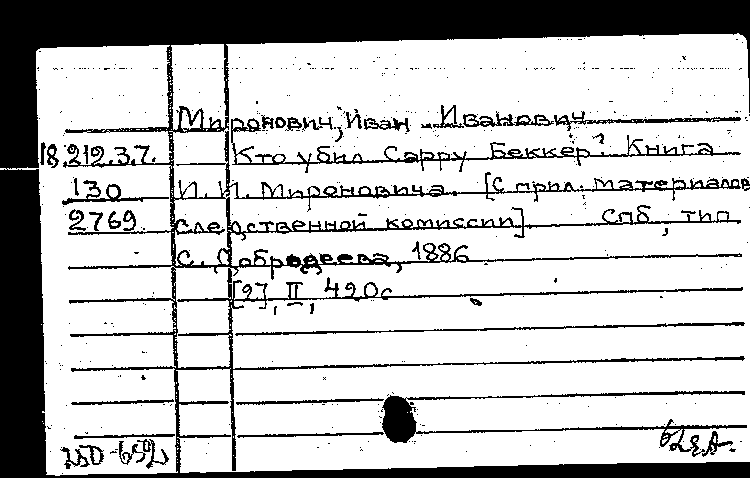 Миронович, Иван Иванович
18.212.3.7. Кто убил Сарру Беккер? Книга
130 И. И. Мироновича. [С прил. материалов
2769 следственной комиссии]. Спб, тип
С. Добродеева, 1886
[2], II, 420с